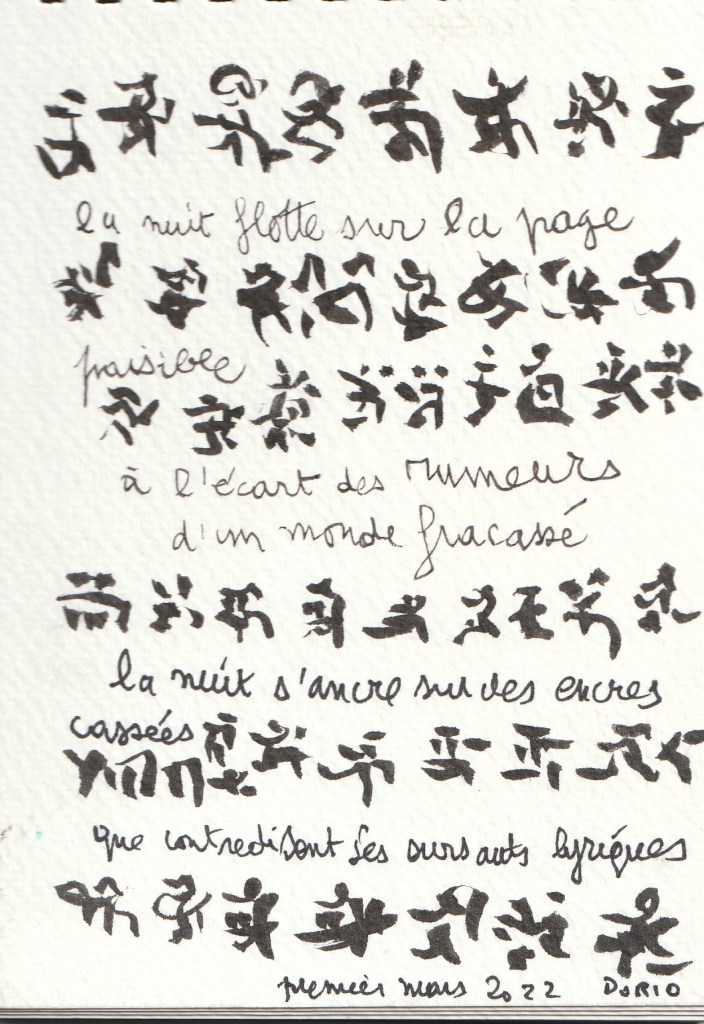 la nuit flotte sur la page
paisible
à l'écart des rumeurs
d'un monde fracassé
la nuit s'ancre sur des encres
cassées
que contredisent ses sursauts lyriques
premier mars 2022 DORIO